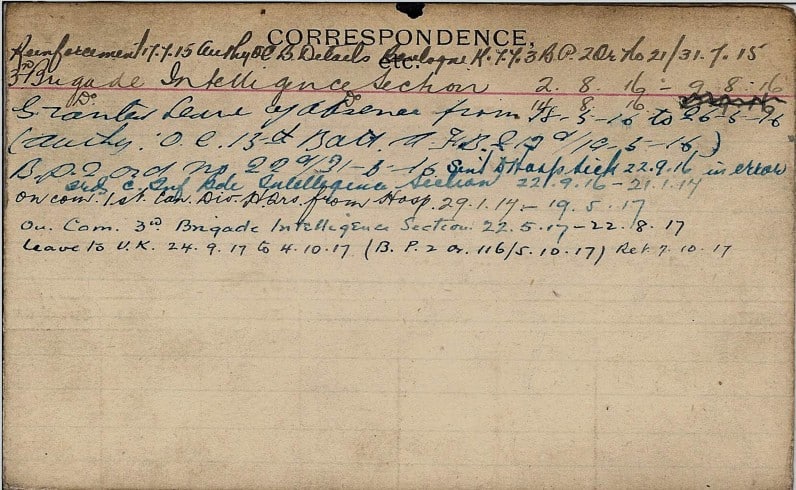 CORRESPONDENCE,
etc.
Reinforcement 17.7.15 Authy OC B. Details Boulogne 2 Or No 21/31.7.15
3rd Brigade Intelligence Section 2.8.16 - 9.8.16
Do Do 14.8.16
Granted Leave of absence from 18-5-16 to 26-5-16
(Authy: O.C. 13th Batt.
B.P.2 Ord no Sent to Hosp sick 22.9.16 in error
3rd C. Inf Bde Intelligence Section 22.9.16 - 21.1.17
on com. 1st. Can. Div. Hqrs. from Hosp. 29.1.17 - 19.5.17
On. Com. 3rd Brigade Intelligence Section. 22.5.17 - 22.8.17
Leave to U.K. 24.9.17 to 4.10.17 (B.P. 2 Or. 116/5.10.17) Ret 7.10.17